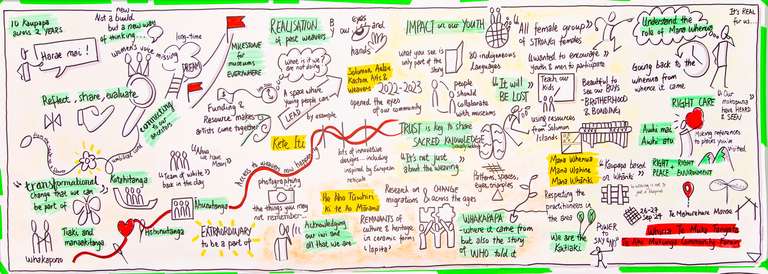 10 Kaupapa
across 2 YEARS
Haerae mai!
new
Not a build
but a new way
of thinking
women's voice missing...
long-time
DREAM
MILESTONE
for
museums
EVERYWHERE
Reflect, share, evaluate
connecting
to our
ancestors
"transformational"
change that we can
be part of
Tiaki and
manaakitanga
Whakapono
Kotahitanga
"Ahua
we have
Moana"
"Team of waka"
back in the day
Ahurutanga
EXTRAORDINARY
to be a part of
REALISATION
of past weavers
what is it
we are
not doing?
A space where
young people can
LEAD
by example
Funding &
Resource makes
artists come together
Kete Iti
Access to weavers now happening
kits of innovative
designs - including
inspired by European
photographing
the things you
may not
remember...
Acknowledging
our iwi and
all that we are
our
eyes
and
hands
Solomon
Kastom Arts &
Weavers
2022-2023
opened the eyes
of our community
He Aho Tāwhiri
ki te Ao Mārama
Research on CHANGE
migrations across the ages
REMNANTS of
culture & heritage
in ceramic form
lapita
IMPACT on our YOUTH
what you see is
only part of the
story
80 indigenous
languages
people
should
collaborate
with museums
TRUST is key to share
SACRED KNOWLEDGE
"It's not just
about the weaving"
Patterns, spaces,
eyes, triangles
WHAKAPAPA
- where it came from
but also the story
of WHO told it
"All female group"
of STRONG females
Wanted to encourage
youth & men to participate
"It will
BE LOST"
Teach our
kids
Beautiful to
see our BOYS
- BROTHERHOOD
& BONDING
using resources
from Solomon
Islands
Mana Whenua
Mana Wāhine
Mana Whānki
Kaupapa based
on Whānki
Respecting the
practitioners in
the area
We are the
Kaitiaki
POWER
TO
SAY
Understand the
role of Mana Whenua
It's REAL
for us...
Going back to the
whenua from
where it came
"Our
mokopuna
have HEARD
& SEEN"
RIGHT CARE
Awhi mai
Awhi atu
Making references
to places you've
visited
RIGHT PLACE
RIGHT ENVIRONMENT
28-29
Sep 24
Te Mahurehure Marae